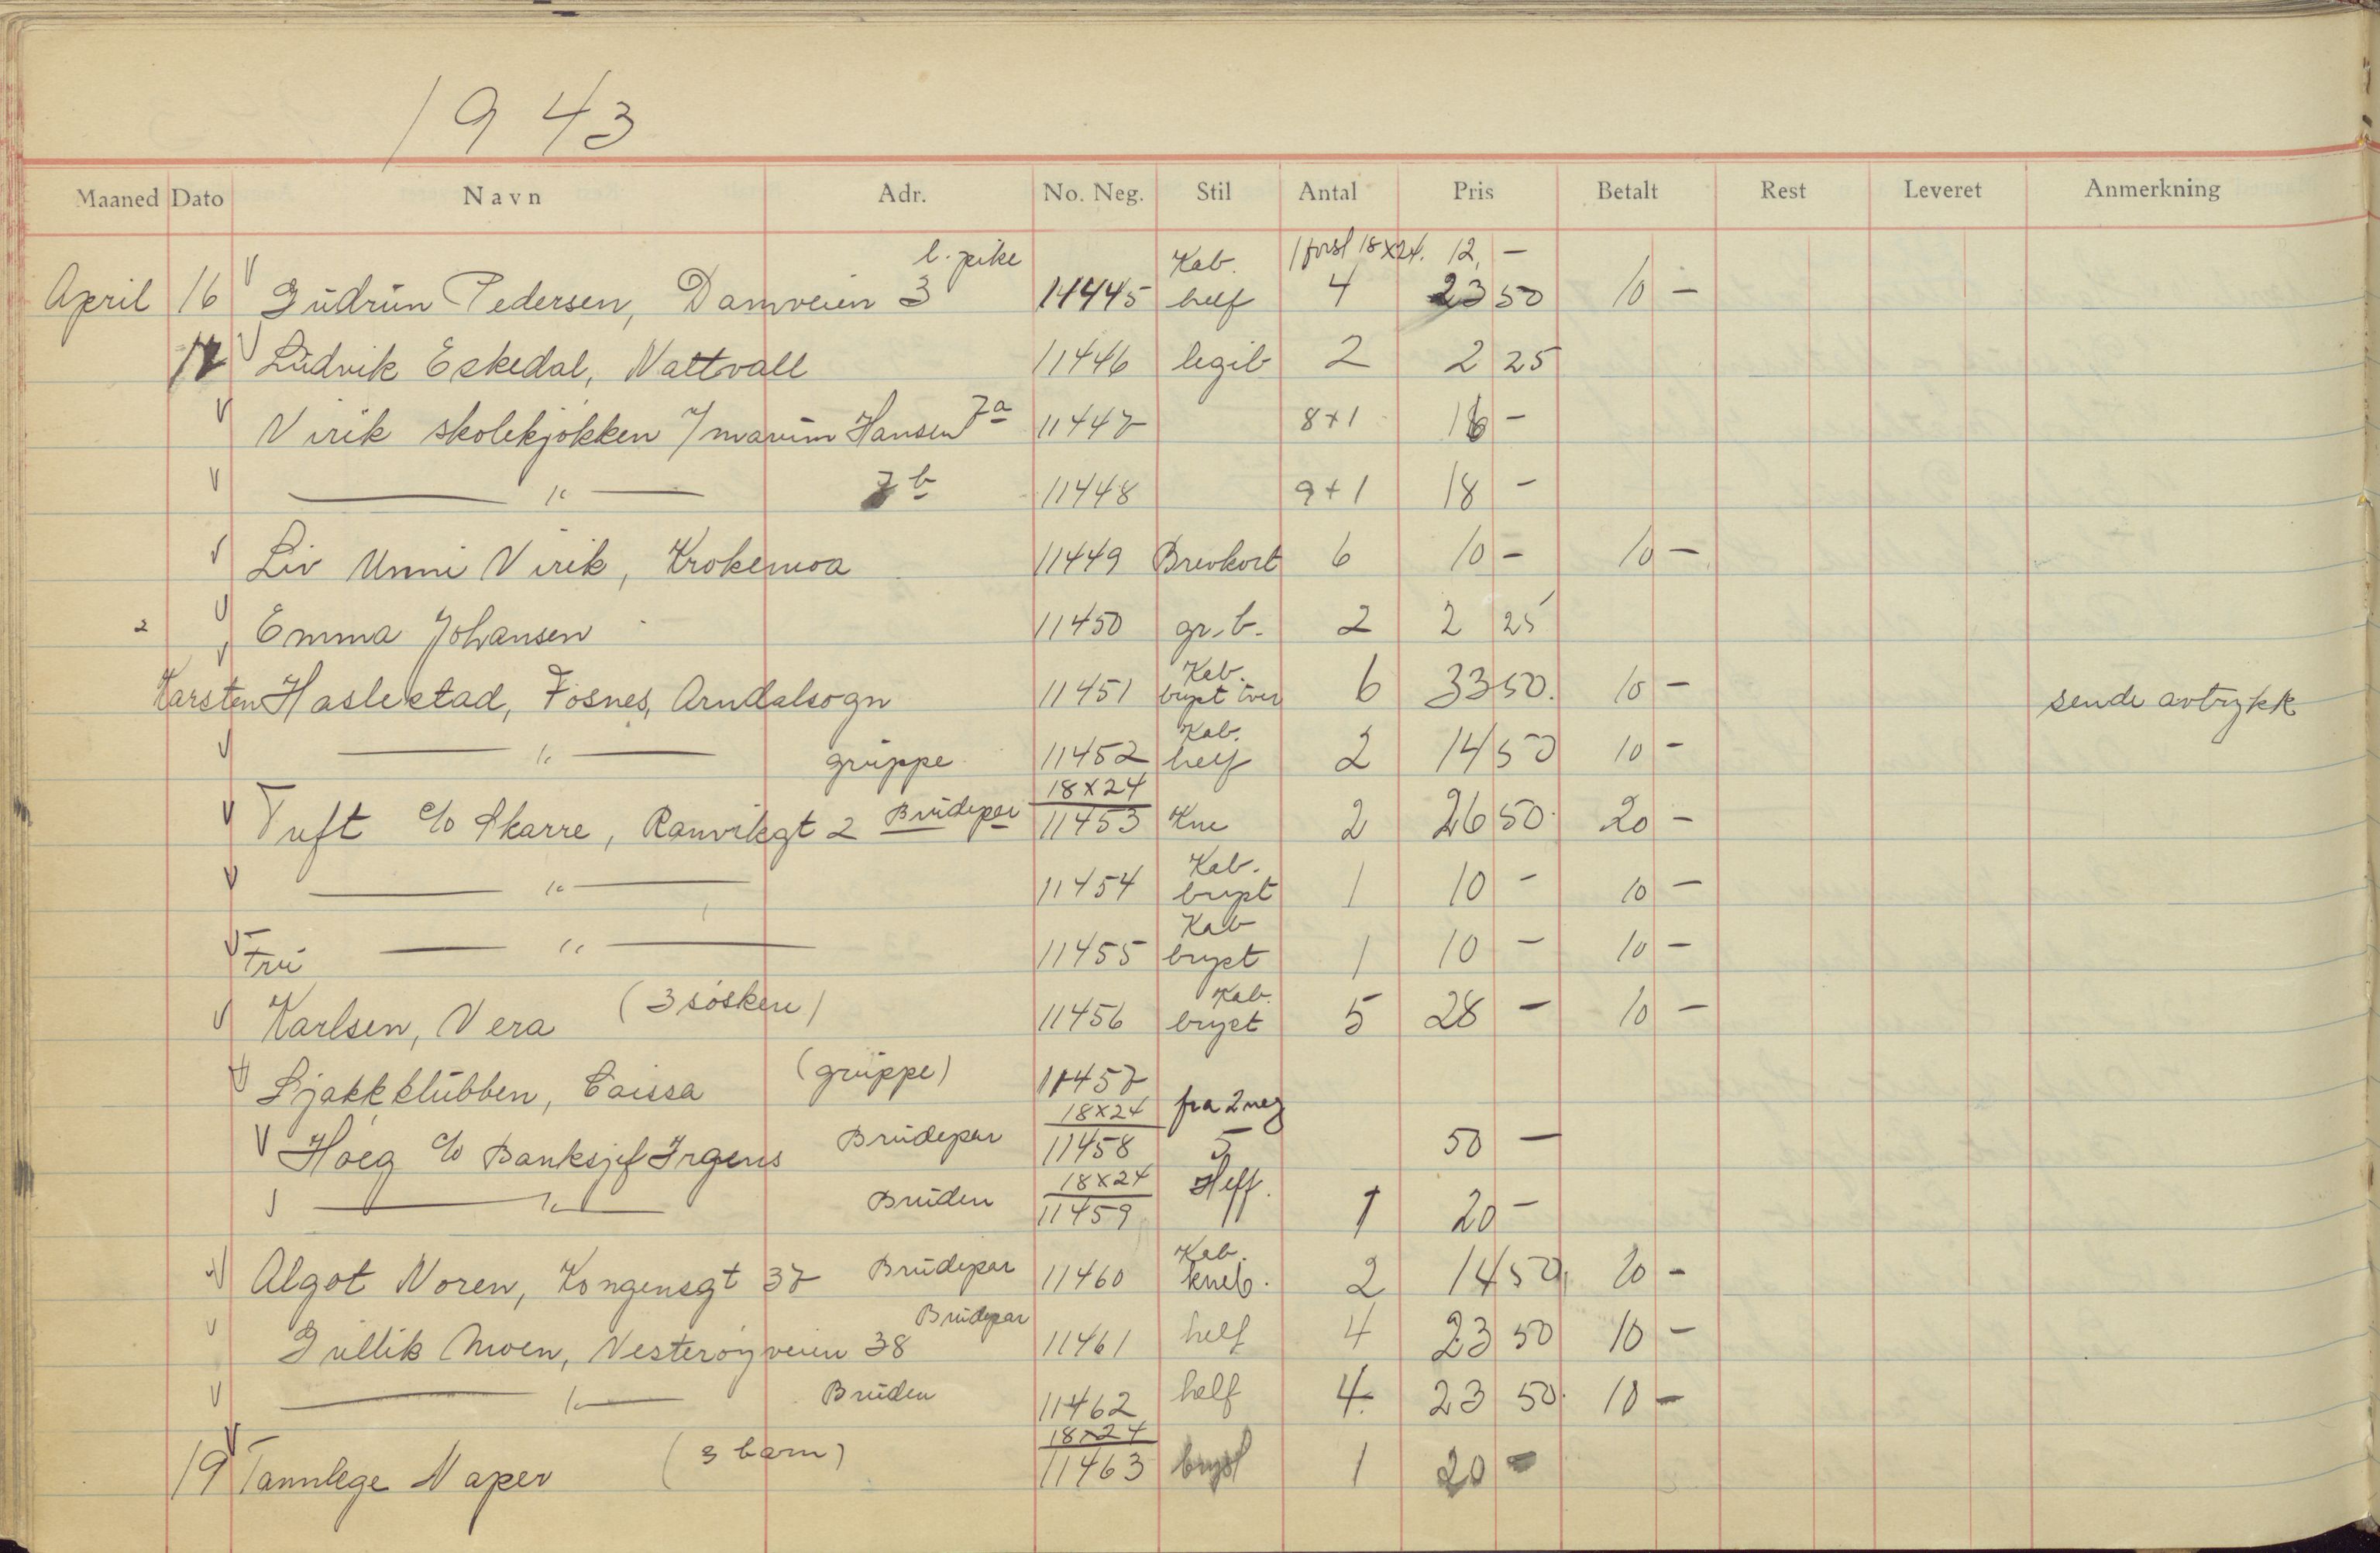 1943
Maaned Dato Navn Adr. No. Neg. Stil Antal Pris Betalt Rest Leveret Anmerkning
l. pike Kab. 1 forst 18x24. 12, —
April 16 V Gudrun Pedersen, Damveien 3 11445 helf 4 23 50 10 —
17 V Ludvik Eskedal, Nattvall 11446 legib 2 2 25
V Virik skolekjøkken v/ Hansen 7a 11447 8+1 16 —
V — " — 7b 11448 9+1 18 —
V Liv Unni Virik, Krokemoa 11449 Brevkort 6 10 — 10 —
2 V Emma Johansen 11450 gr. b. 2 2 25
V Kab.
Karsten Haslestad, Fosnes, Arndalsogn 11451 bryst 6 33 50. 10 — sende avtrykk
Kab.
V — " — gruppe 11452 helf 2 14 50 10 —
18x24
V Tuft c/o Skarre, Ranvikgt 2 Brudepar 11453 Kne 2 26 50. 20 —
Kab.
V — " — 11454 bryst 1 10 — 10 —
Kab
V Fru — " — 11455 bryst 1 10 — 10 —
Kab.
V Karlsen, Vera (3 søsken) 11456 bryst 5 28 — 10 —
V Sjakklubben, Caissa (gruppe) 11457
18x24 fra 2 neg
V Høeg c/o Banksjef Irgens Brudepar 11458 5 50 —
18x24 Helf.
V — " — Bruden 11459 1 20 —
Kab.
V Algot Noren, Kongensgt 37 Brudepar 11460 kneb. 2 14 50, 20 —
Brudepar
V Gullik Moen, Nesterøyveien 38 11461 helf 4 23 50 10 —
V — " — Bruden 11462 half 4. 23 50. 10 —
18x24
19 V Tannlege Naper (3 barn) 11463 bryst 1 20 —